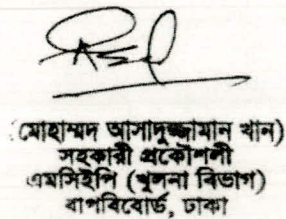 (মোহাম্মদ আসাদুজ্জামান খান)
সহকারী প্রকৌশলী
এমসিইপি (খুলনা বিভাগ)
বাপবিবোর্ড, ঢাকা